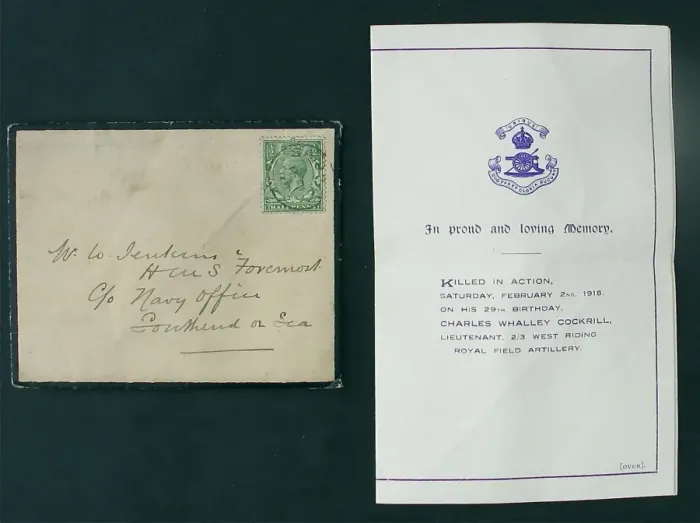 HALFPENNY
W. W. Jenkins
H M S Foremost
C/o Navy Office
Southend on Sea
UBIQUE
QUO FAS ET GLORIA DUCUNT
In proud and loving Memory.
KILLED IN ACTION,
SATURDAY, FEBRUARY 2ND, 1918.
ON HIS 29TH BIRTHDAY,
CHARLES WHALLEY COCKRILL,
LIEUTENANT, 2/3 WEST RIDING
ROYAL FIELD ARTILLERY.
[OVER].